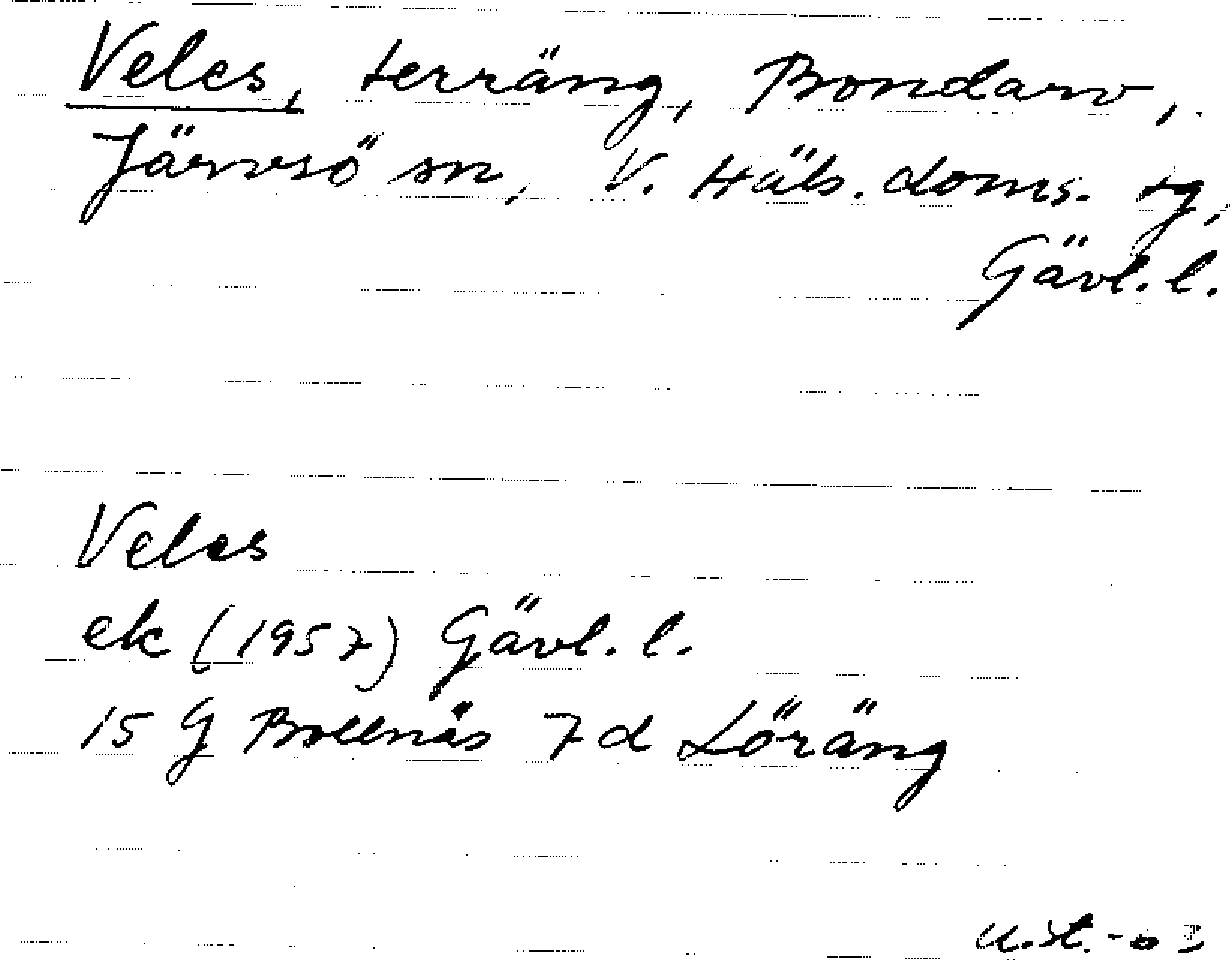 Veles, terräng, Bondarv,
Järvsö sn, V. Häls. doms. tg,
Gävl. l.
Veles
ek (1957) Gävl. l.
15 G Bollnäs 7 d Löräng
u.st.-03